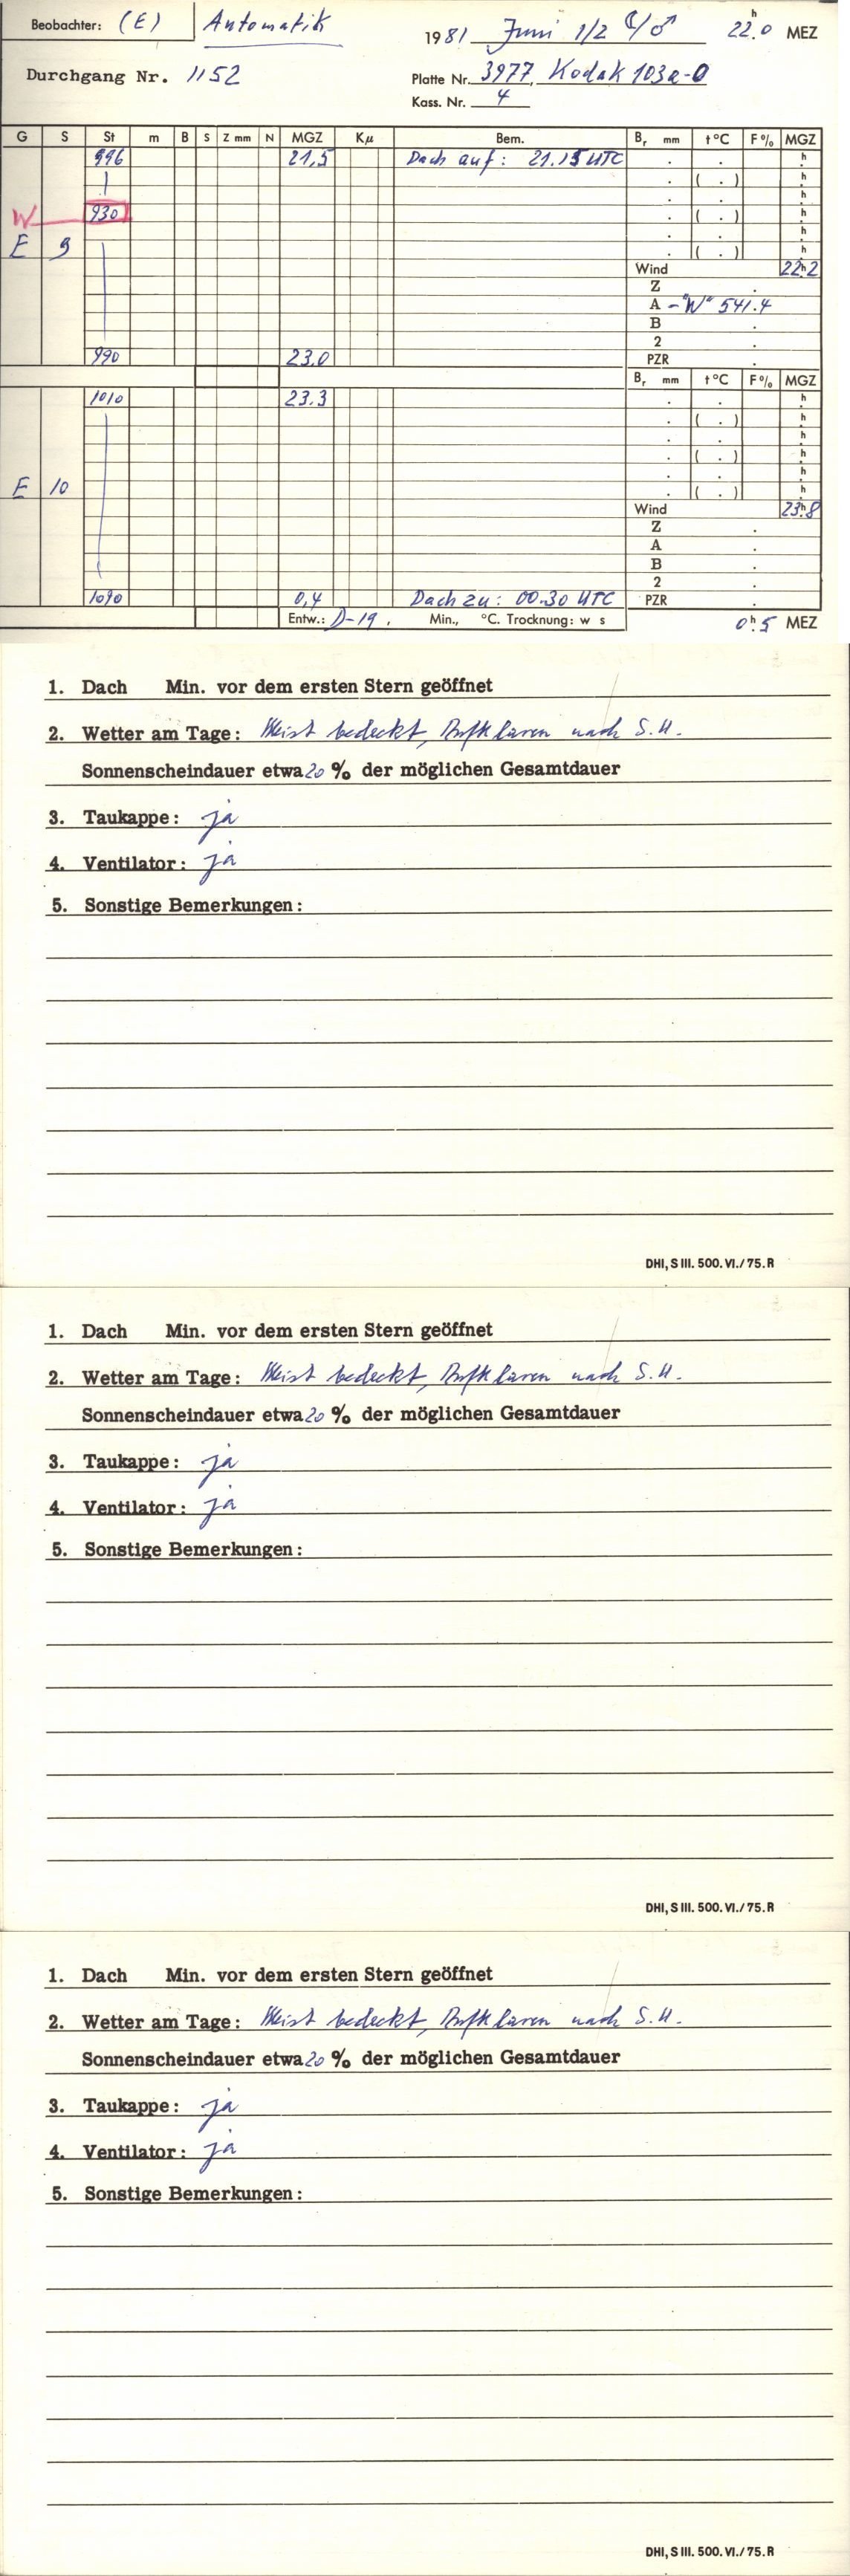 Beobachter: (E) Automatik 1981 Juni 1/2 ☾/♂ 22.h0 MEZ
Durchgang Nr. 1152 Platte Nr. 3977, Kodak 103a-O
Kass. Nr. 4
G S St m B S Z mm N MGZ Kμ Bem. Br mm t°C F% MGZ
996 21,5 Dach auf: 21.15 UTC . . h
. ( . ) h
. . h
W 930 . ( . ) h
. . h
E 9 . ( . ) h
Wind 22h2
Z .
A -"W" 541.4
B .
2 .
990 23,0 PZR .
Br mm t°C F% MGZ
1010 23.3 . . h
. ( . ) h
. . h
. ( . ) h
. . h
E 10 . ( . ) h
Wind 23h8
Z .
A .
B .
2 .
1090 0,4 Dach zu: 00.30 UTC PZR .
Entw.: D-19, Min., °C. Trocknung: w s 0h5 MEZ
1. Dach Min. vor dem ersten Stern geöffnet
2. Wetter am Tage: Meist bedeckt, Aufklaren nach S.U.
Sonnenscheindauer etwa 20 % der möglichen Gesamtdauer
3. Taukappe: ja
4. Ventilator: ja
5. Sonstige Bemerkungen:
DHI, S III. 500. VI./75. R
1. Dach Min. vor dem ersten Stern geöffnet
2. Wetter am Tage: Meist bedeckt, Aufklaren nach S.U.
Sonnenscheindauer etwa 20 % der möglichen Gesamtdauer
3. Taukappe: ja
4. Ventilator: ja
5. Sonstige Bemerkungen:
DHI, S III. 500. VI./75. R
1. Dach Min. vor dem ersten Stern geöffnet
2. Wetter am Tage: Meist bedeckt, Aufklaren nach S.U.
Sonnenscheindauer etwa 20 % der möglichen Gesamtdauer
3. Taukappe: ja
4. Ventilator: ja
5. Sonstige Bemerkungen:
DHI, S III. 500. VI./75. R